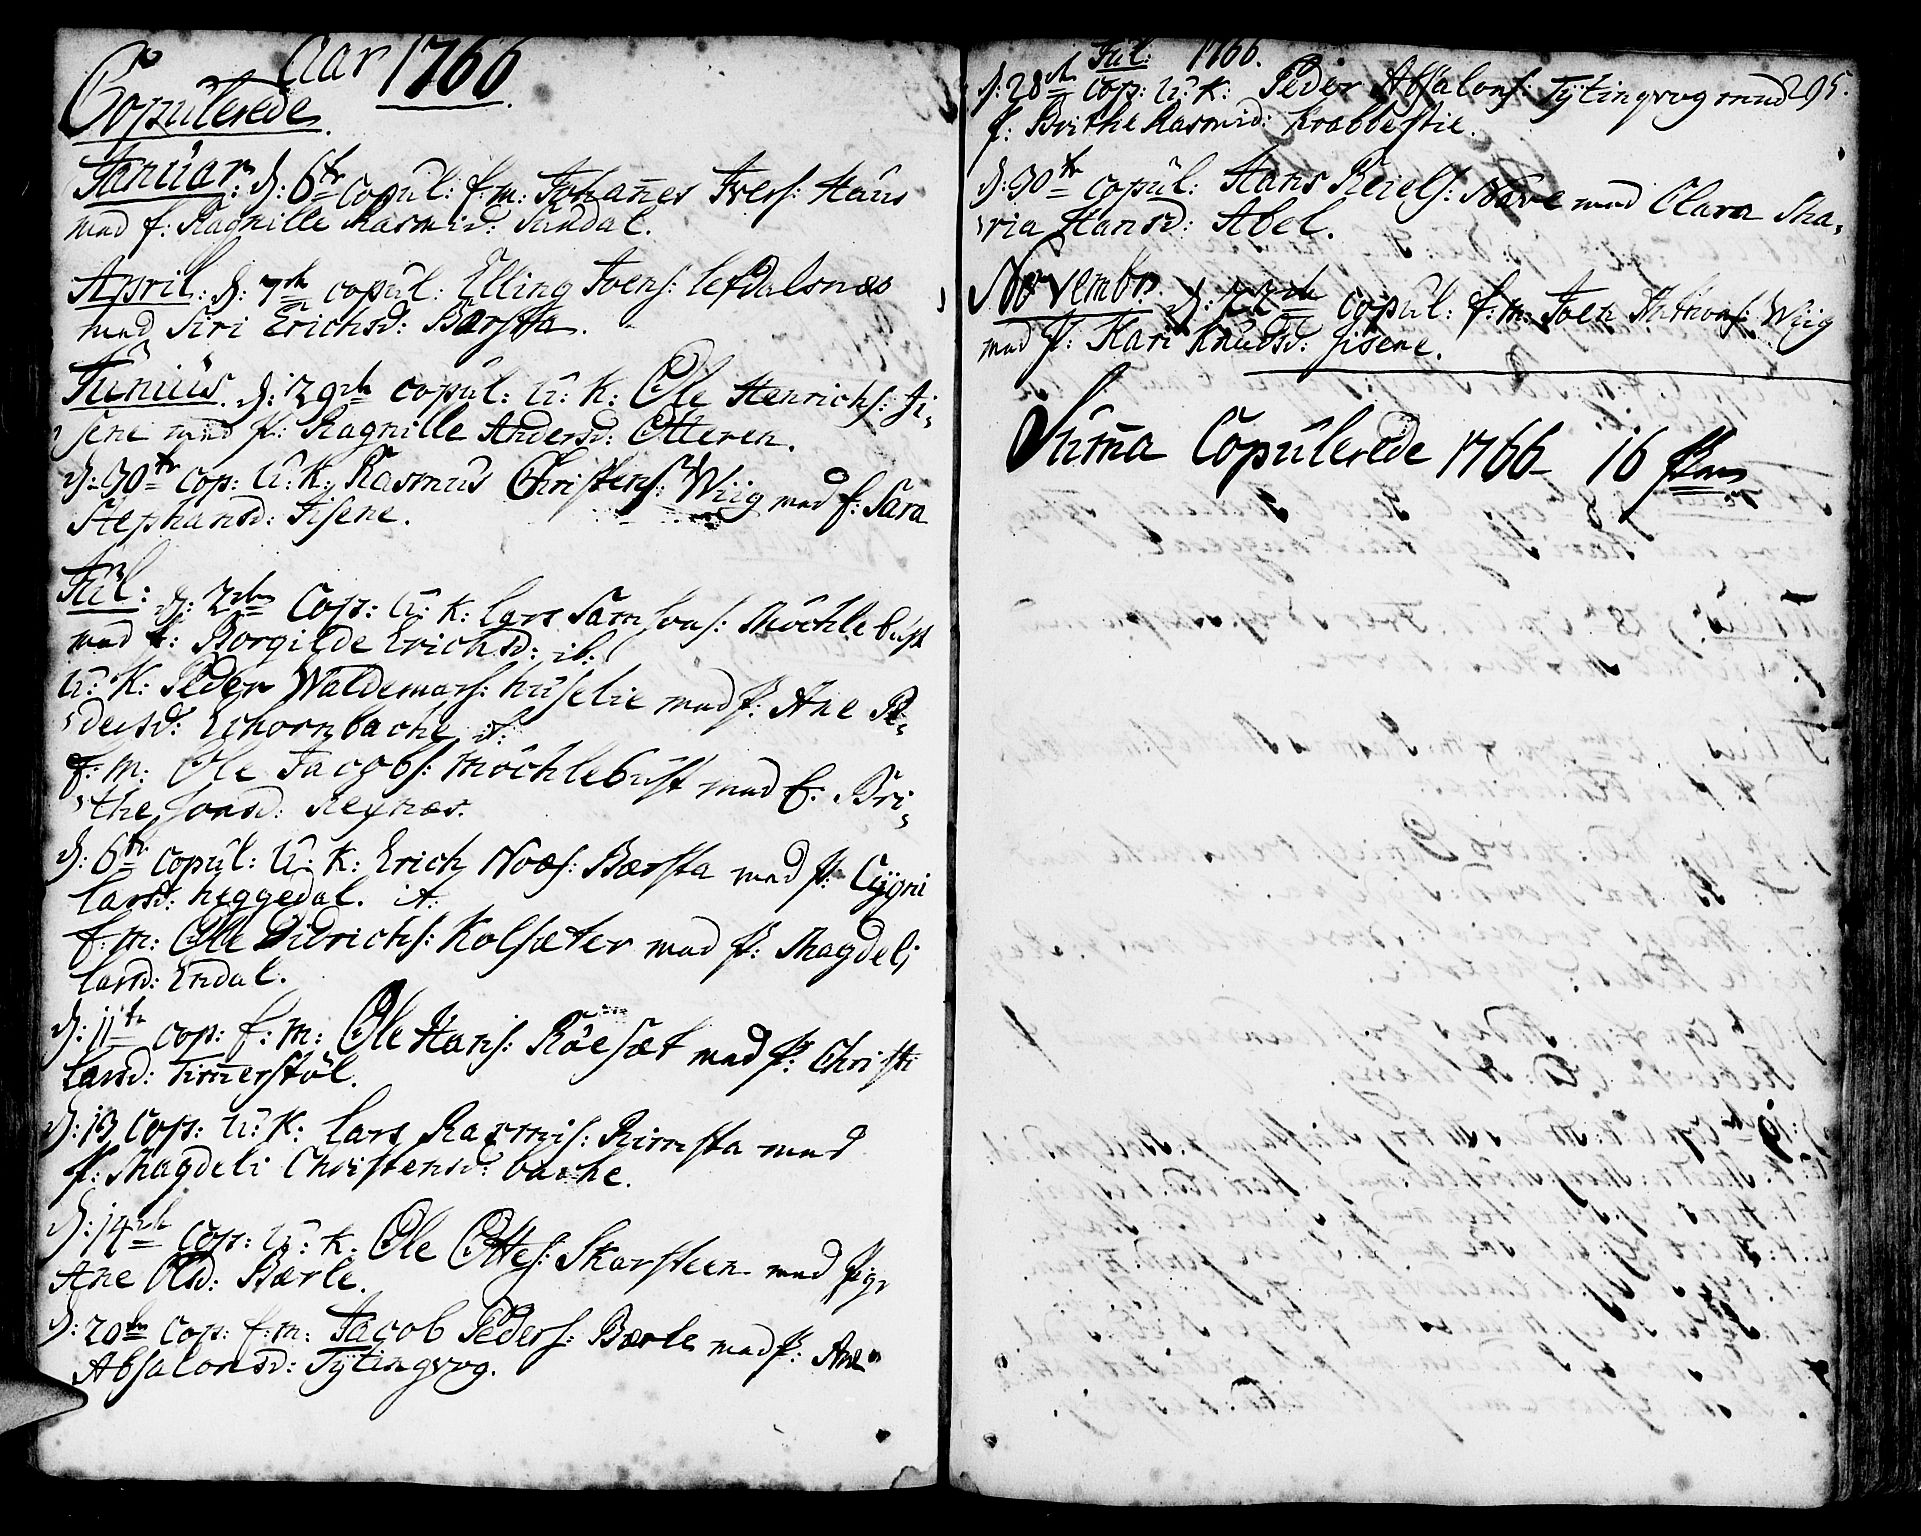 Aar 1766.
Copulerede.
Januar: d: 6te copul: E: m: Johañes Ivers: Haus
med E: Ragnille Rasmusd: Sandal.
April: d: 7de copul: Elling Joens: Lefdalsnæs
med Siri Erichsd: Bærsta.
Junius. d: 29de copul: U: K: Ole Henrichs: Ji,
sene med P: Ragnille Andersd: Otteren.
d: 30te cop: U: K: Rasmus Christens: Wiig med E: Sara
Stephansd: Jisene.
Jul: d: 2den Cop: U: K: Lars Samsons: Möchlebust
med E: Borgilde Erichsd: ib:
U: K: Peder Waldemars: Huselie med P: Ane Pe,
dersd: Echornbache it:
E: m: Ole Jacobs: Möchlebust med E: Bri,
the Jonsd: Reynæs.
d: 6te copul: U: K: Erich Noæs: Bærsta med P: Cygni
Larsd: Heggedal. it:
E: m: Ole Didrichs: Kolsæter med P: Magdeli
Larsd: Endal.
d: 11te cop: E: m: Ole Hans: Röesæt med P: Christi
Larsd: Tim̃erstöl.
d: 13 Cop: U: K: Lars Rasmus: Rimsta med
P: Magdeli Christensd: bache.
d: 14de Cop: U: K: Ole Ottes: Skarsteen med Pig,
Ane Olsd: Bærle.
d: 20de Cop: E: m: Jacob Peders: Bærle med P: Ane
Absalonsd: Tÿtingvog.
Jul: 1766.
295.
d: 28de cop: U: K: Peder Absalons: Tÿtingvog med
P: Brithe Rasmusd: Krabbestie.
d: 30te copul: Hans Reiels: Nave med Clara Ma,
ria Hansd: Abel.
Novembr. d: 22de copul: E: m: Joen Anthons: Wiig
med P: Kari Knudsd: Jisene.
Sum̃a Copulerede 1766 16 Par